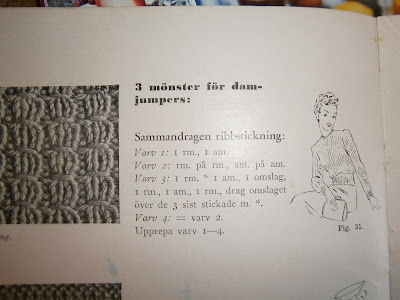 3 mönster för dam-
jumpers:
Sammandragen ribbstickning:
Varv 1: 1 rm., 1 am.
Varv 2: rm. på rm., am. på am.
Varv 3: 1 rm. * 1 am., 1 omslag,
1 rm., 1 am., 1 rm., drag omslaget
över de 3 sist stickade m. *.
Varv 4: = varv 2.
Upprepa varv 1—4.
Fig. 31.